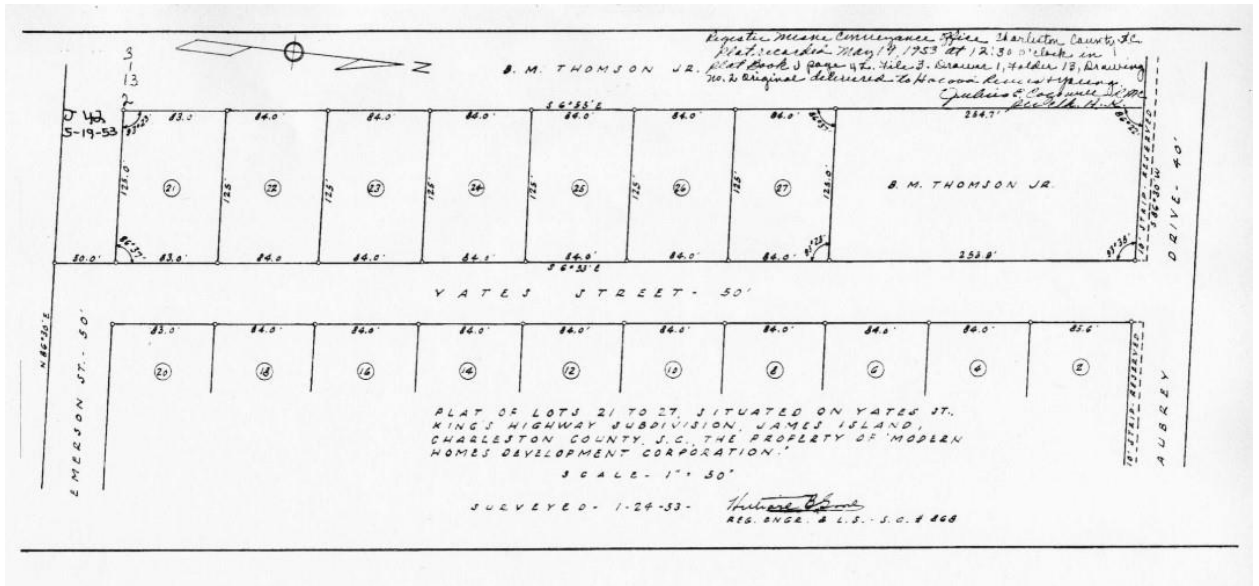 Register Mesne Conveyance Office Charleston County, S.C.
Plat recorded May 19, 1953 at 12:30 o'clock in
Plat Book J page 42. File 3. Drawer 1, Folder 13, Drawing
No. 2 Original delivered to
Julius E. Cogswell R.M.C.
3
1
13
2
J 42
5-19-53
N
B. M. THOMSON JR.
S 6°55' E
93°23'
83.0'
84.0'
84.0'
84.0'
84.0'
84.0'
84.0'
86°37'
254.7'
86°22'
125.0'
21
125'
22
125'
23
125'
24
125'
25
125'
26
125'
27
125.0'
B. M. THOMSON JR.
10' STRIP RESERVED
S 86°30' W
DRIVE - 40'
50.0'
86°37'
83.0'
84.0'
84.0'
84.0'
84.0'
84.0'
84.0'
93°23'
253.8'
93°38'
S 6°55' E
YATES STREET - 50'
N 86°30' E
EMERSON ST. - 50'
83.0'
84.0'
84.0'
84.0'
84.0'
84.0'
84.0'
84.0'
84.0'
85.6'
20
18
16
14
12
10
8
6
4
2
10' STRIP RESERVED
AUBREY
PLAT OF LOTS 21 TO 27, SITUATED ON YATES ST.,
KING'S HIGHWAY SUBDIVISION, JAMES ISLAND,
CHARLESTON COUNTY, S.C., THE PROPERTY OF "MODERN
HOMES DEVELOPMENT CORPORATION."
SCALE - 1" = 50'
SURVEYED - 1-24-53 -
REG. ENGR. & L.S. - S.C. # 868